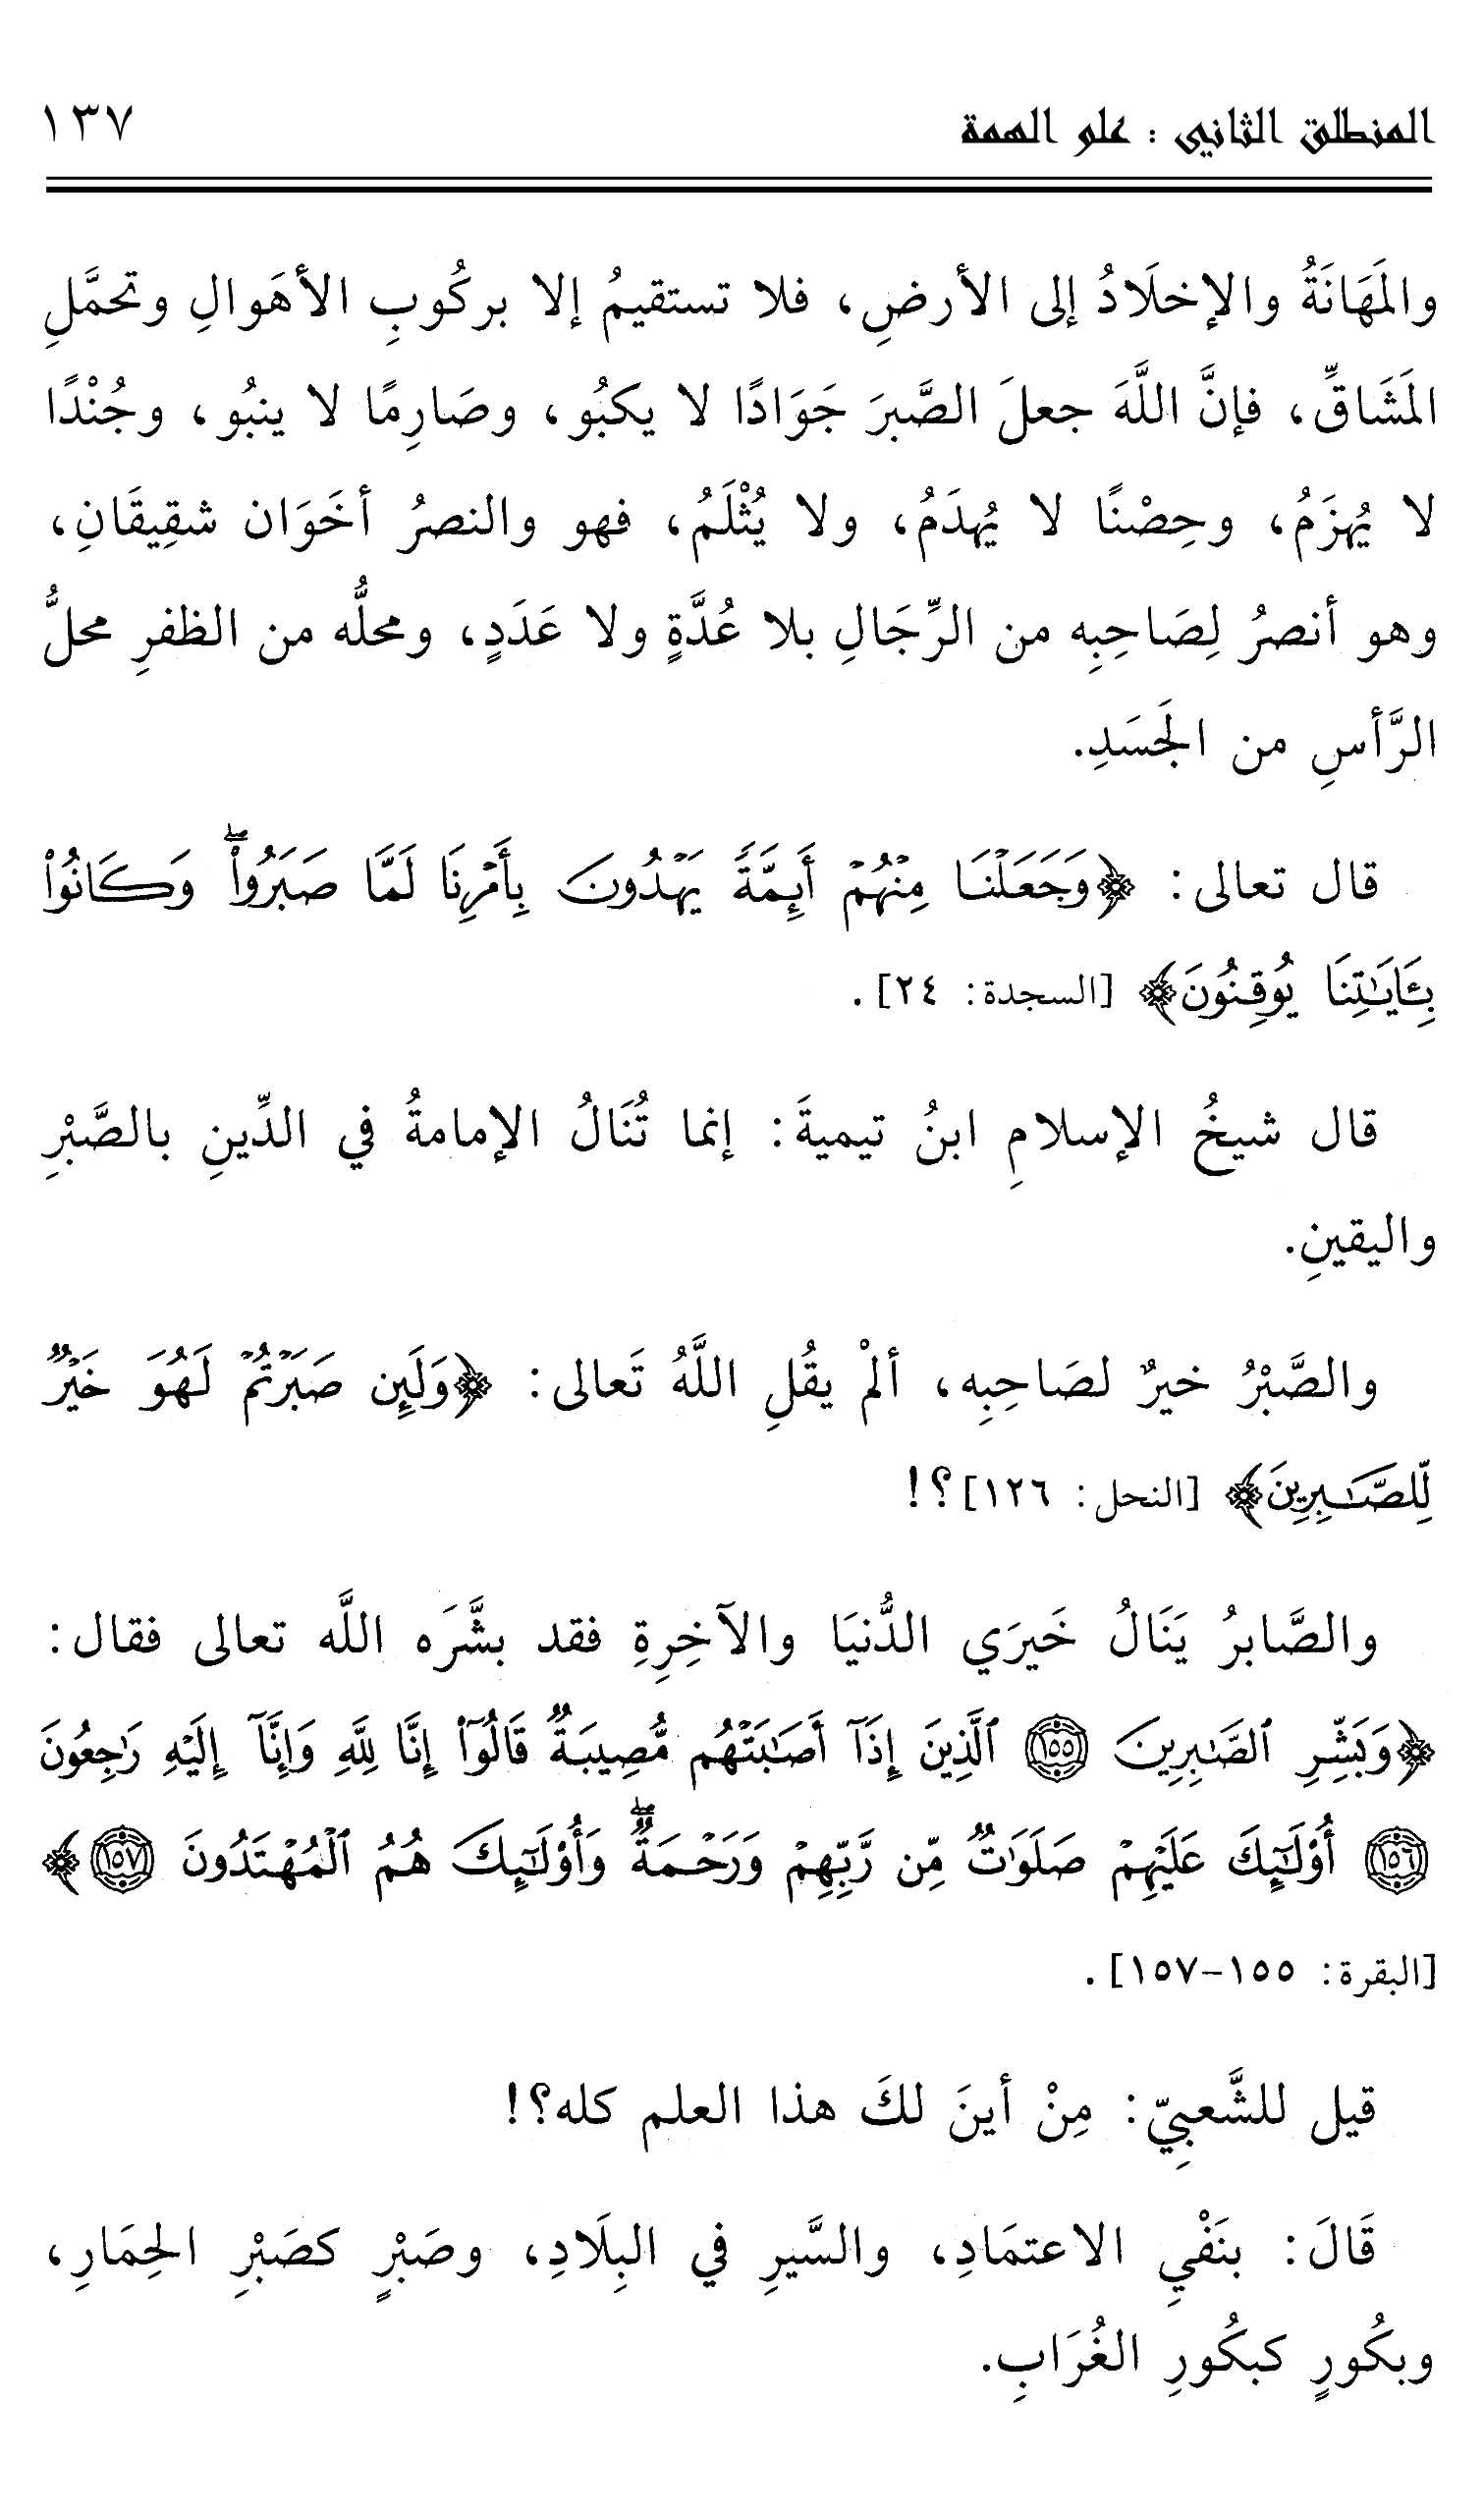 المنطلق الثاني : علو الهمة ١٣٧
والمَهَانَةُ والإخلَادُ إلى الأرضِ، فلا تستقيمُ إلا بركُوبِ الأهَوالِ وتحمَّلِ
المَشَاقِّ، فإنَّ اللَّهَ جعلَ الصَّبرَ جَوَادًا لا يكبُو، وصَارِمًا لا ينبُو، وجُنْدًا
لا يُهزَمُ، وحِصْنًا لا يُهدَمُ، ولا يُثْلَمُ، فهو والنصرُ أخَوَان شقِيقَانِ،
وهو أنصرُ لِصَاحِبِه من الرِّجَالِ بلا عُدَّةٍ ولا عَدَدٍ، ومحلُّه من الظفرِ محلُّ
الرَّأسِ من الجَسَدِ.
قال تعالى: ﴿وَجَعَلْنَا مِنْهُمْ أَئِمَّةً يَهْدُونَ بِأَمْرِنَا لَمَّا صَبَرُواْۖ وَكَانُواْ
بِـَٔايَـٰتِنَا يُوقِنُونَ﴾ [السجدة: ٢٤].
قال شيخُ الإسلامِ ابنُ تيميةَ: إنما تُنَالُ الإمامةُ في الدِّينِ بالصَّبْرِ
واليقينِ.
والصَّبْرُ خيرٌ لصَاحِبِه، ألمْ يقُلِ اللَّهُ تَعالى: ﴿وَلَئِن صَبَرْتُمْ لَهُوَ خَيْرٌ
لِّلصَّـٰبِرِينَ﴾ [النحل: ١٢٦]؟!
والصَّابرُ يَنَالُ خَيرَي الدُّنيَا والآخِرِةِ فقد بشَّرَه اللَّه تعالى فقال:
﴿وَبَشِّرِ ٱلصَّـٰبِرِينَ ١٥٥ ٱلَّذِينَ إِذَآ أَصَـٰبَتْهُم مُّصِيبَةٌ قَالُوٓاْ إِنَّا لِلَّهِ وَإِنَّآ إِلَيْهِ رَٰجِعُونَ
١٥٦ أُوْلَـٰٓئِكَ عَلَيْهِمْ صَلَوَٰتٌ مِّن رَّبِّهِمْ وَرَحْمَةٌۖ وَأُوْلَـٰٓئِكَ هُمُ ٱلْمُهْتَدُونَ ١٥٧﴾
[البقرة: ١٥٥-١٥٧].
قيل للشَّعبِيّ: مِنْ أينَ لكَ هذا العلم كله؟!
قَالَ: بنَفْيِ الاعتمَادِ، والسَّيرِ في البِلَادِ، وصَبْرٍ كصَبْرِ الحِمَارِ،
وبكُورٍ كبكُورِ الغُرَابِ.